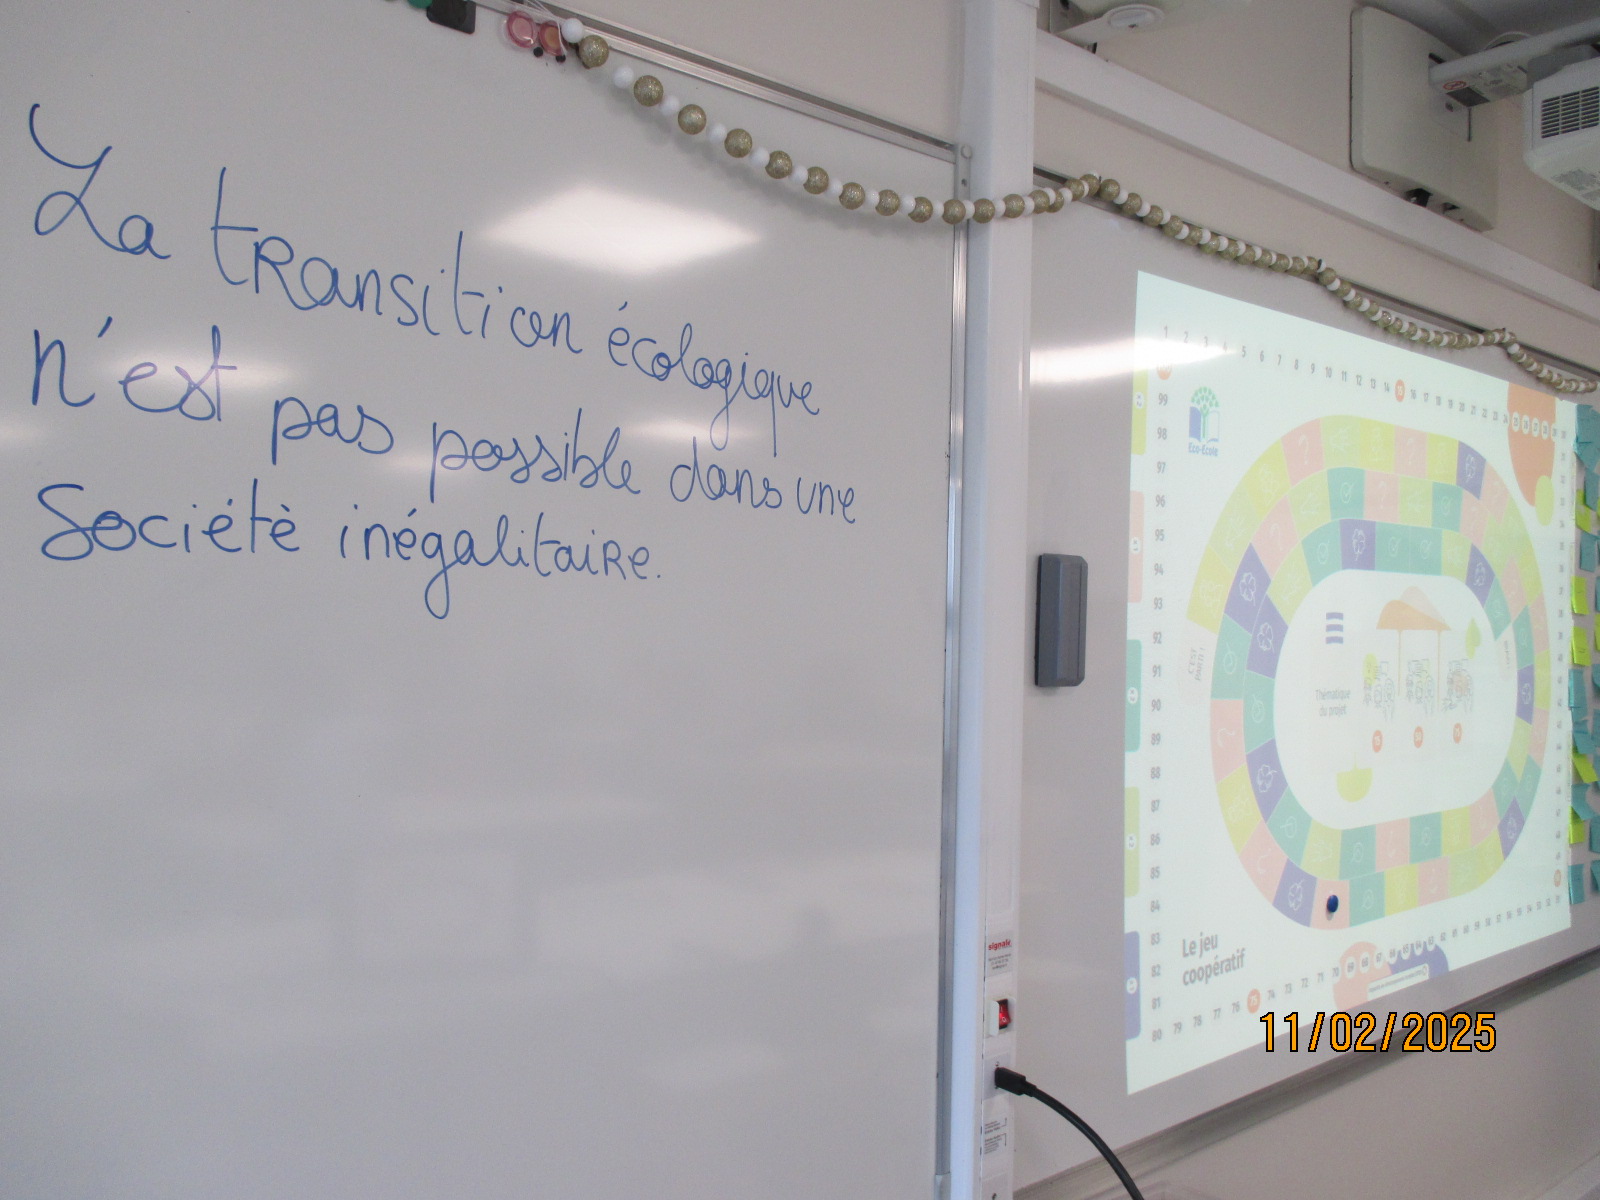 La transition écologique
n'est pas possible dans une
Société inégalitaire.
1 2 3 4 5 6 7 8 9 10 11 12 13 14 15 16 17 18 19 20 21 22 23 24 25 26 27 28 29 30
99
98
97
96
95
94
93
92
91
90
89
88
87
86
85
84
83
82
81
80 79 78 77 76 75 74 73 72 71 70 69 68 67 66 65 64 63 62 61 60
Eco-Ecole
C'EST
PARTI !
Thématique
du projet
Le jeu
coopératif
signale
11/02/2025